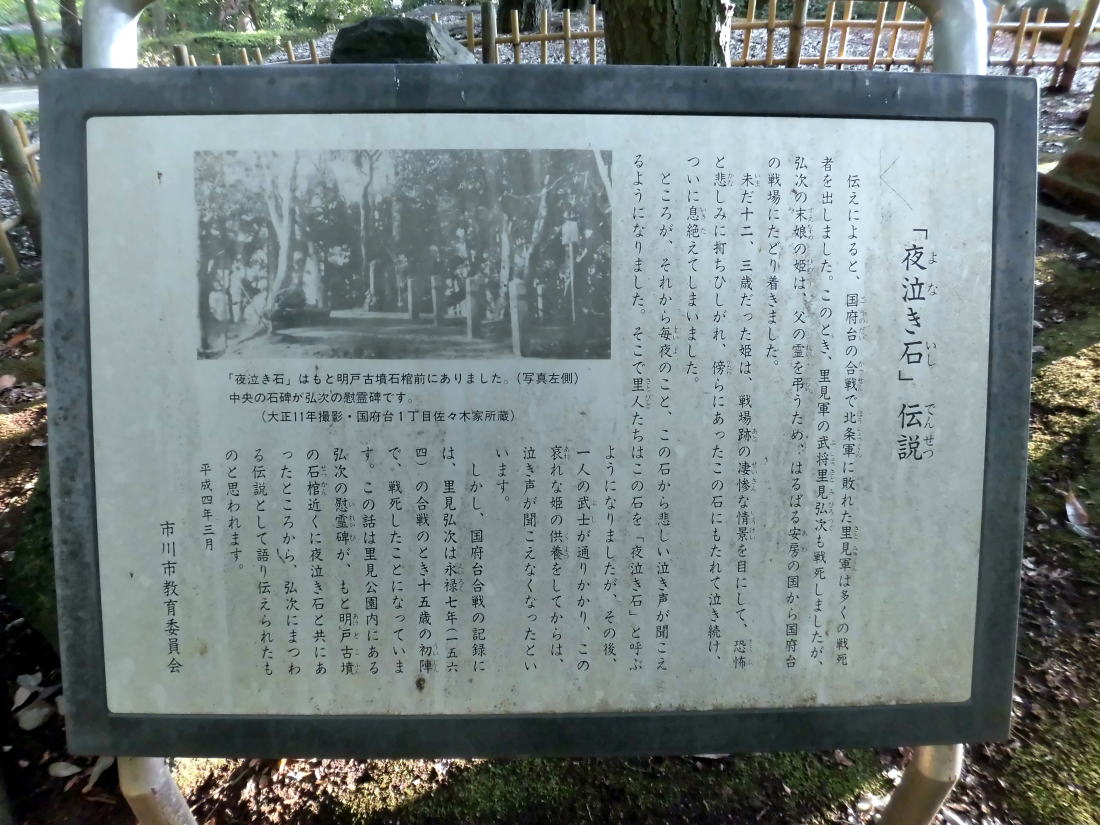 「夜泣き石」伝説
伝えによると、国府台の合戦で北条軍に敗れた里見軍は多くの戦死
者を出しました。このとき、里見軍の武将里見弘次も戦死しましたが、
弘次の末娘の姫は、父の霊を弔うため、はるばる安房の国から国府台
の戦場にたどり着きました。
未だ十二、三歳だった姫は、戦場跡の凄惨な情景を目にして、恐怖
と悲しみに打ちひしがれ、傍らにあったこの石にもたれて泣き続け、
ついに息絶えてしまいました。
ところが、それから毎夜のこと、この石から悲しい泣き声が聞こえ
るようになりました。そこで里人たちはこの石を「夜泣き石」と呼ぶ
ようになりましたが、その後、
一人の武士が通りかかり、この
哀れな姫の供養をしてからは、
泣き声が聞こえなくなったとい
います。
しかし、国府台合戦の記録に
は、里見弘次は永禄七年（一五六
四）の合戦のとき十五歳の初陣
で、戦死したことになっていま
す。この話は里見公園内にある
弘次の慰霊碑が、もと明戸古墳
の石棺近くに夜泣き石と共にあ
ったところから、弘次にまつわ
る伝説として語り伝えられたも
のと思われます。
平成四年三月
市川市教育委員会
「夜泣き石」はもと明戸古墳石棺前にありました。（写真左側）
中央の石碑が弘次の慰霊碑です。
（大正11年撮影・国府台１丁目佐々木家所蔵）